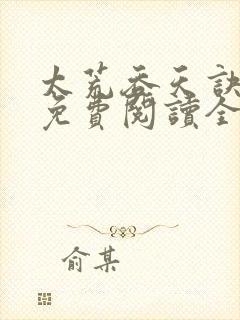 太荒吞天訣
免費閱讀全
俞某